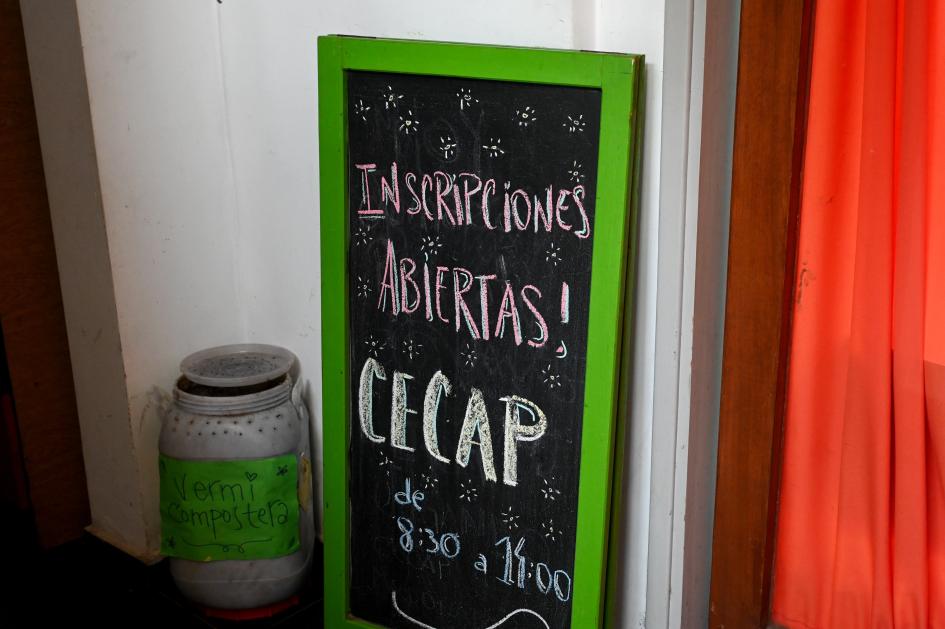 INSCRIPCIONES
ABIERTAS!
CECAP
de
8:30 a 14:00
Vermi
compostera